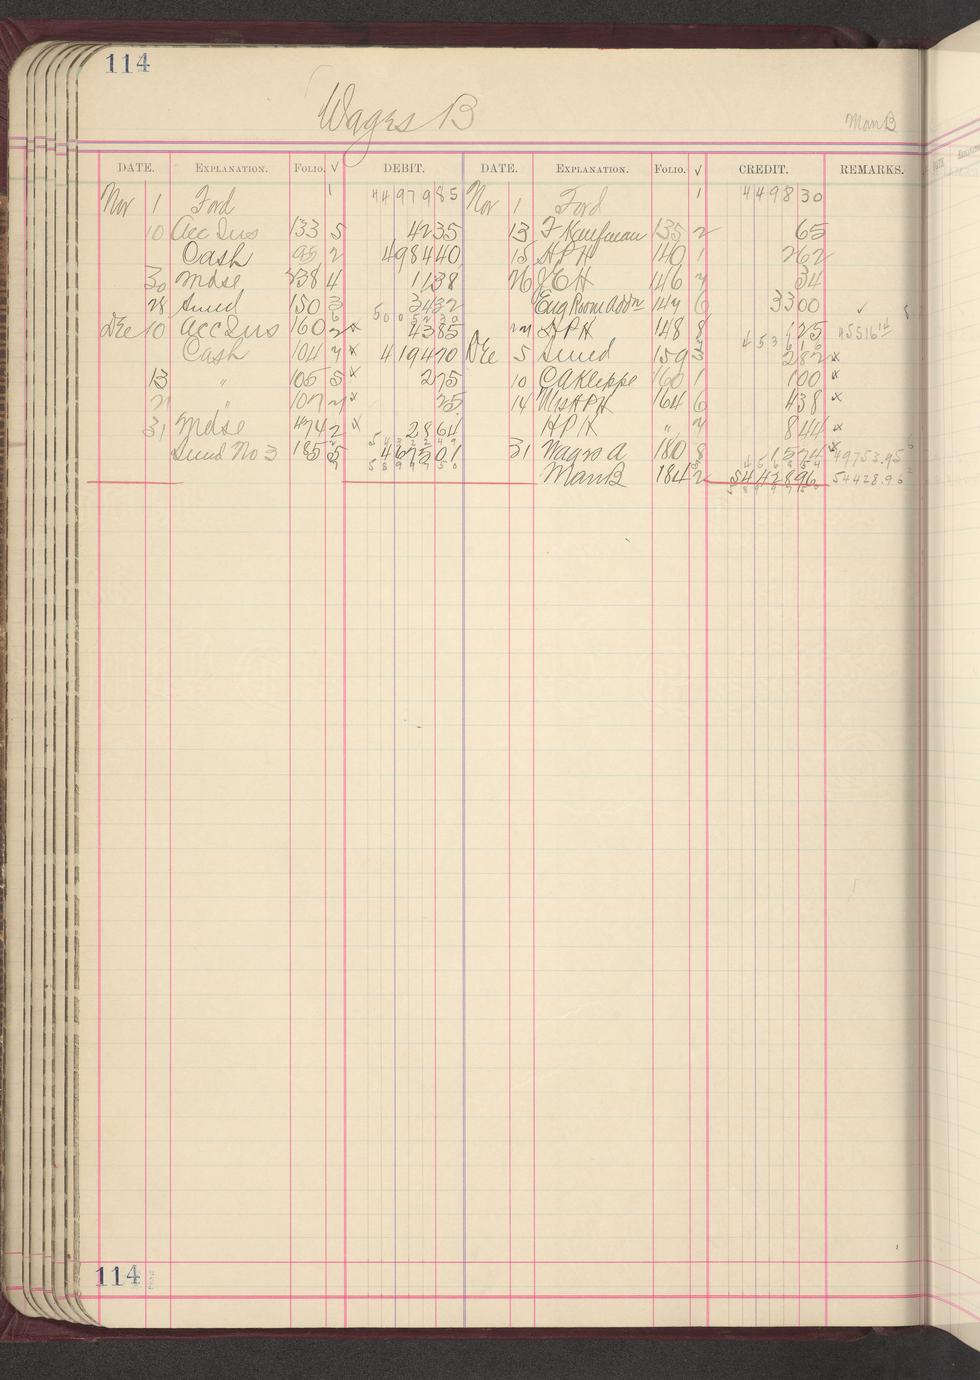 114
Wages B
Man B
DATE. EXPLANATION. FOLIO. √ DEBIT. DATE. EXPLANATION. FOLIO. √ CREDIT. REMARKS.
Nov 1 Ford 1 4497985 Nov 1 Ford 1 449830
10 Acc Ins 133 5 4235 13 F Kaufman 135 2 65
Cash 95 2 498440 15 HPH 140 1 262
30 Mdse 338 4 1138 26 JEH 146 7 34
28 Sund 150 3 3432 Eng Room Addn 147 6 3300 ✓
Dec 10 Acc Ins 160 2 x 4385 27 HPH 148 8 125 45516
Cash 104 7 x 419470 Dec 5 Sund 159 3 282 x
13 " 105 5 x 275 10 CA Kleppe 160 1 100 x
21 " 107 7 x 25 14 Mrs HPH 164 6 438 x
31 Mdse 474 2 x 2864 HPH " 7 844 x
Sund No 3 185 5 467501 31 Wages A 180 8 1574 x 49753.95
589950 Man B 184 2 5442896 54428.96
114